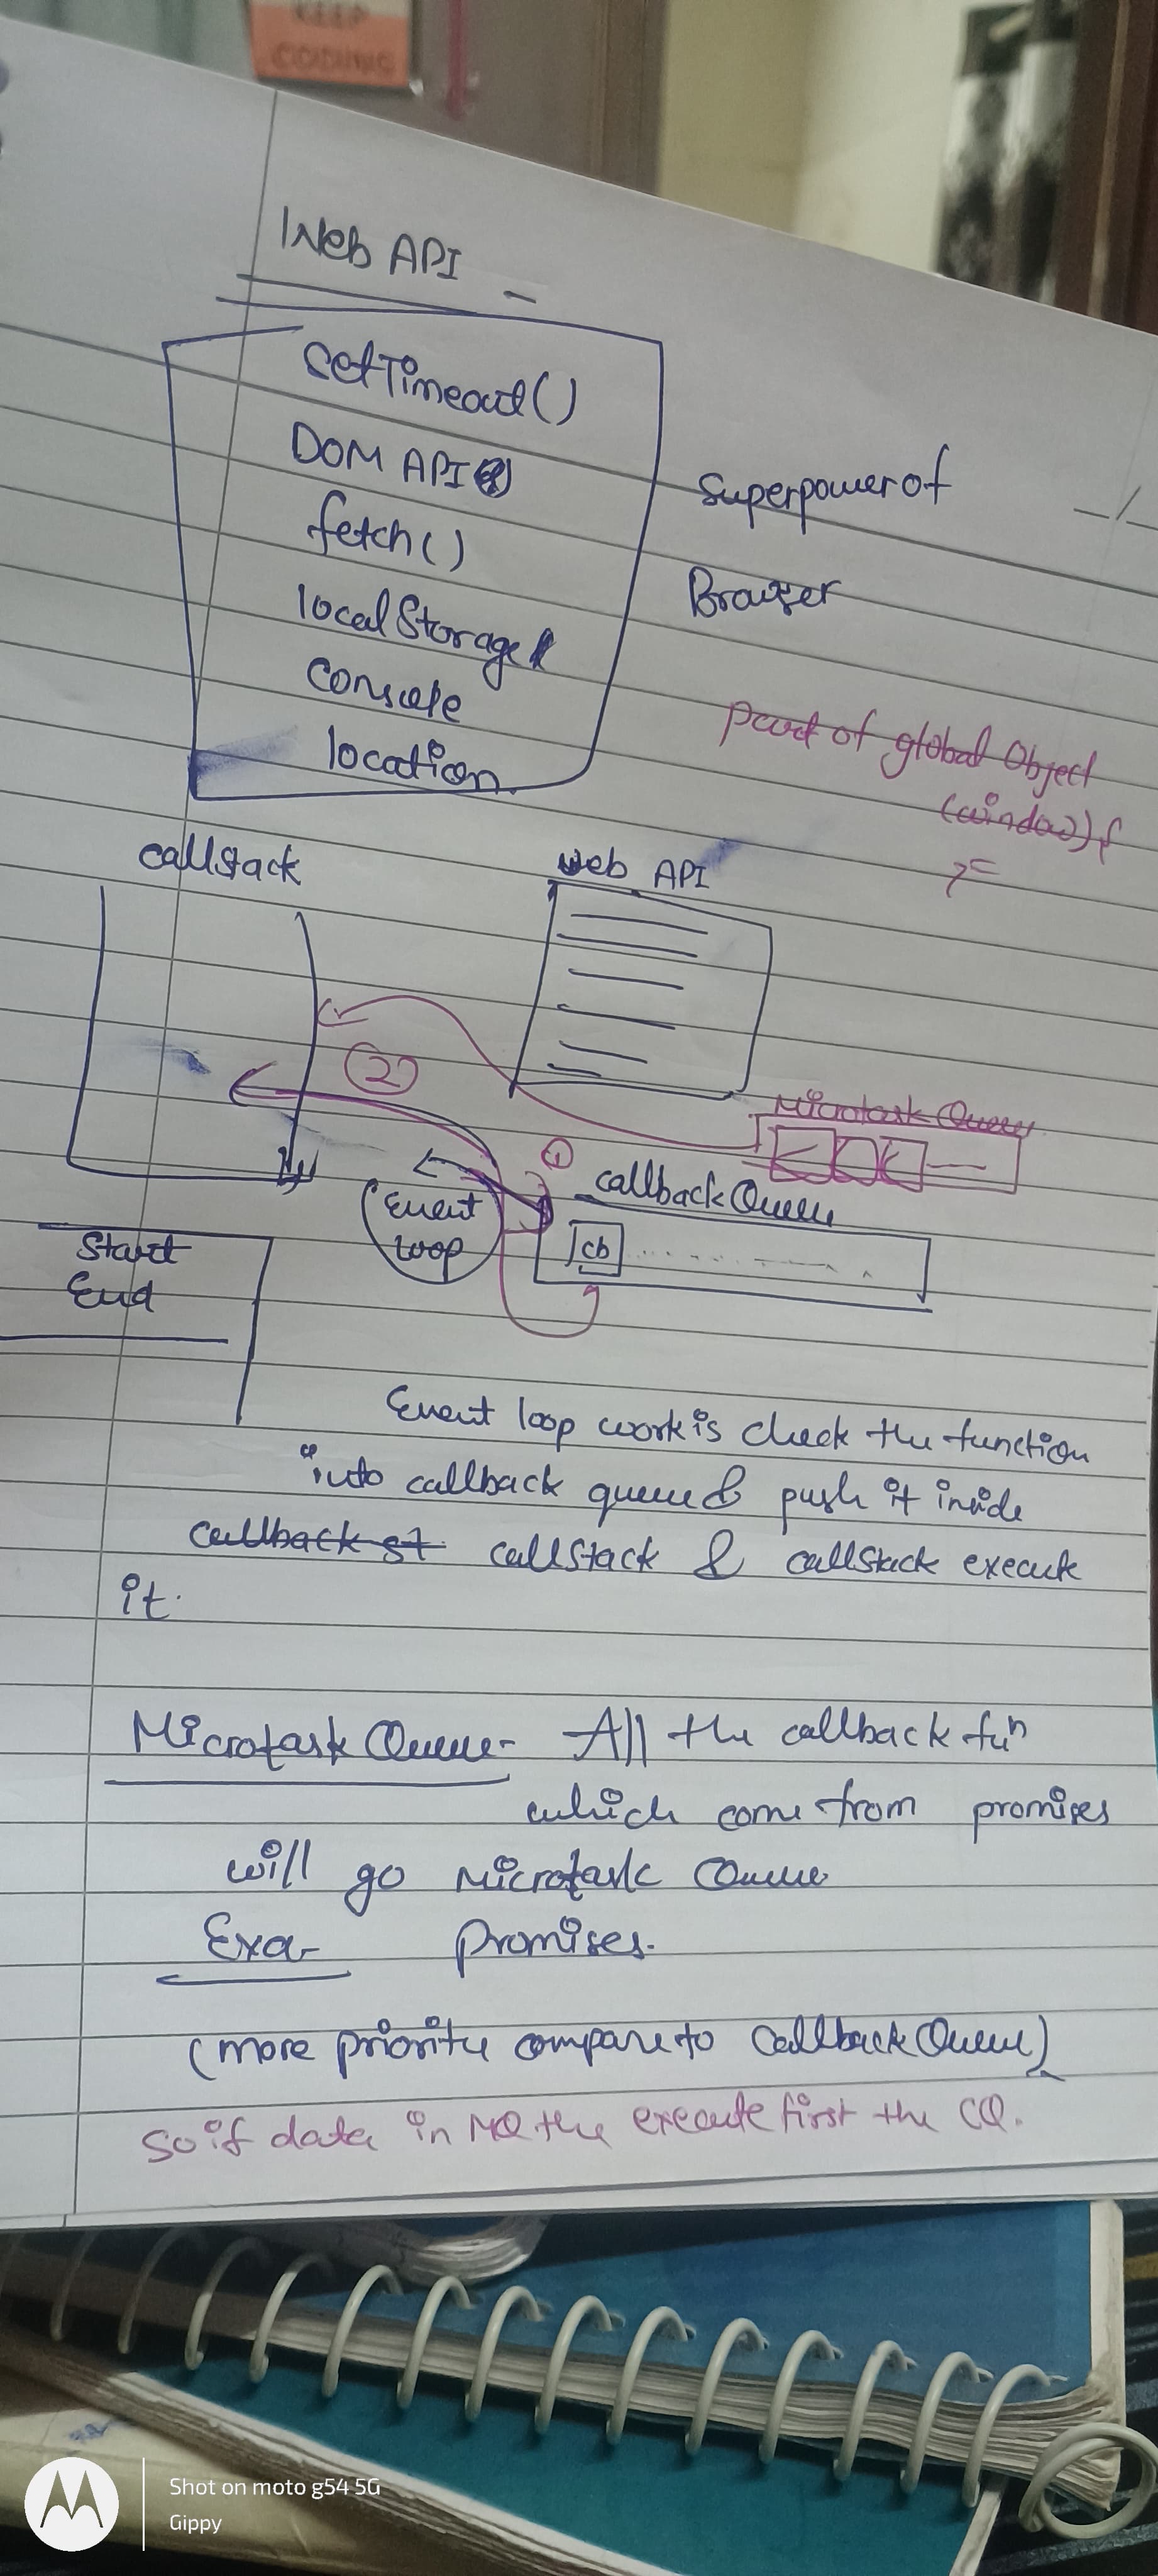 KEEP
CODING
Web API -
setTimeout()
DOM API
fetch()
localStorage
Console
location
Superpower of
Browser
part of global Object
(window)
callstack
web API
2
Microtask Queue
1
callback Queue
cb
Event
Loop
Start
End
Event loop work is check the function
into callback queue & push it inside
callback st callstack & callstack execute
it.
Microtask Queue- All the callback fuⁿ
which come from promises
will go Microtask Queue
Exa- Promises.
(more priority compare to Callback Queue)
So if data in MQ the execute first the CQ.
Shot on moto g54 5G
Gippy